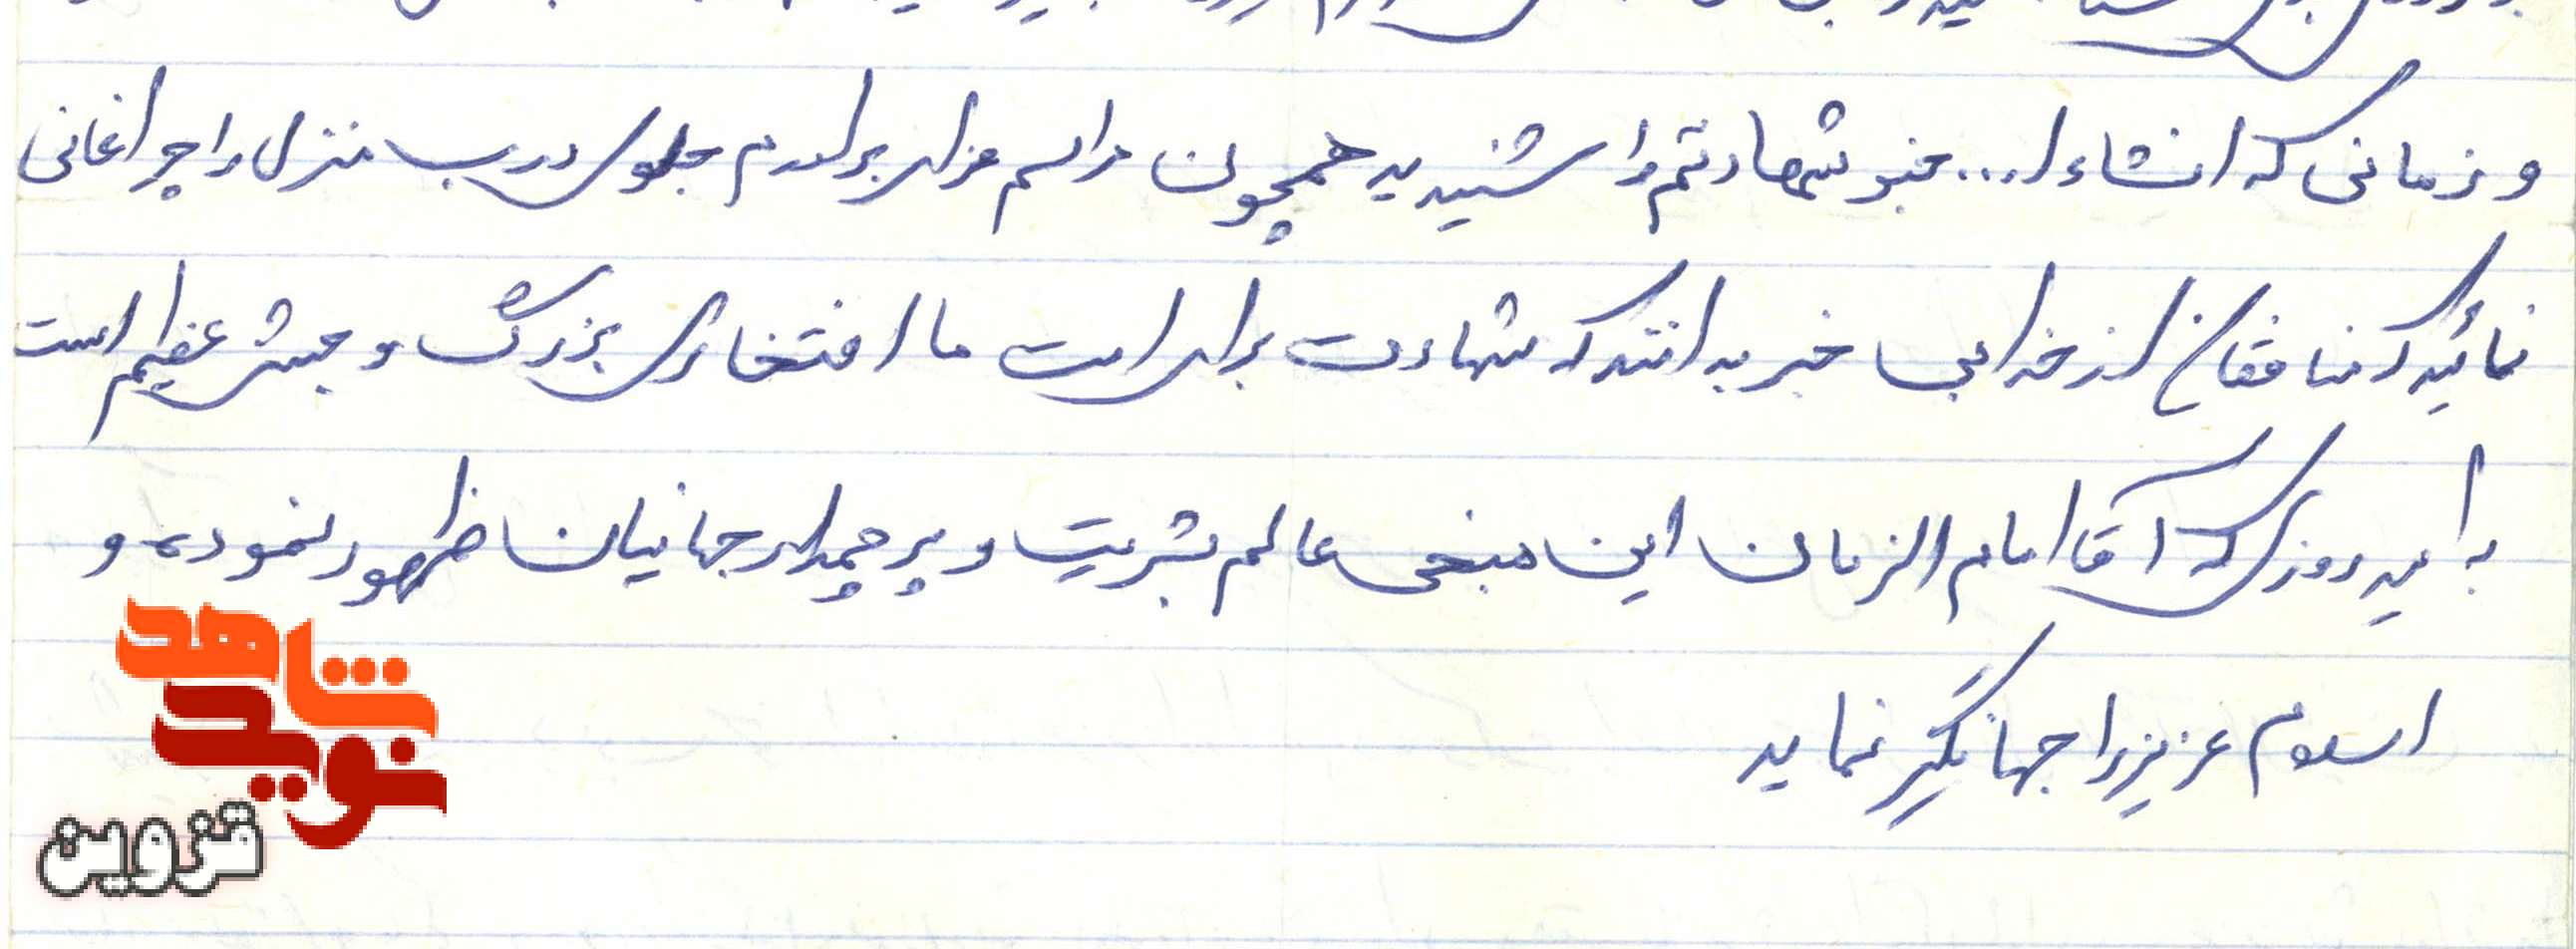 و زمانی که انشاءا... خبر شهادتم را شنیدید همچون مراسم عزای برادرم جلوی درب منزل را چراغانی
نمائید که منافقان از خدا بی خبر بدانند که شهادت برای امت ما افتخاری بزرگ و جشنی عظیم است
به امید روزی که آقا امام الزمان این منجی عالم بشریت و پرچمدار جهانیان ظهور نموده و
اسلام عزیز را جهانگیر نماید
شاهد
نوید
قزوین